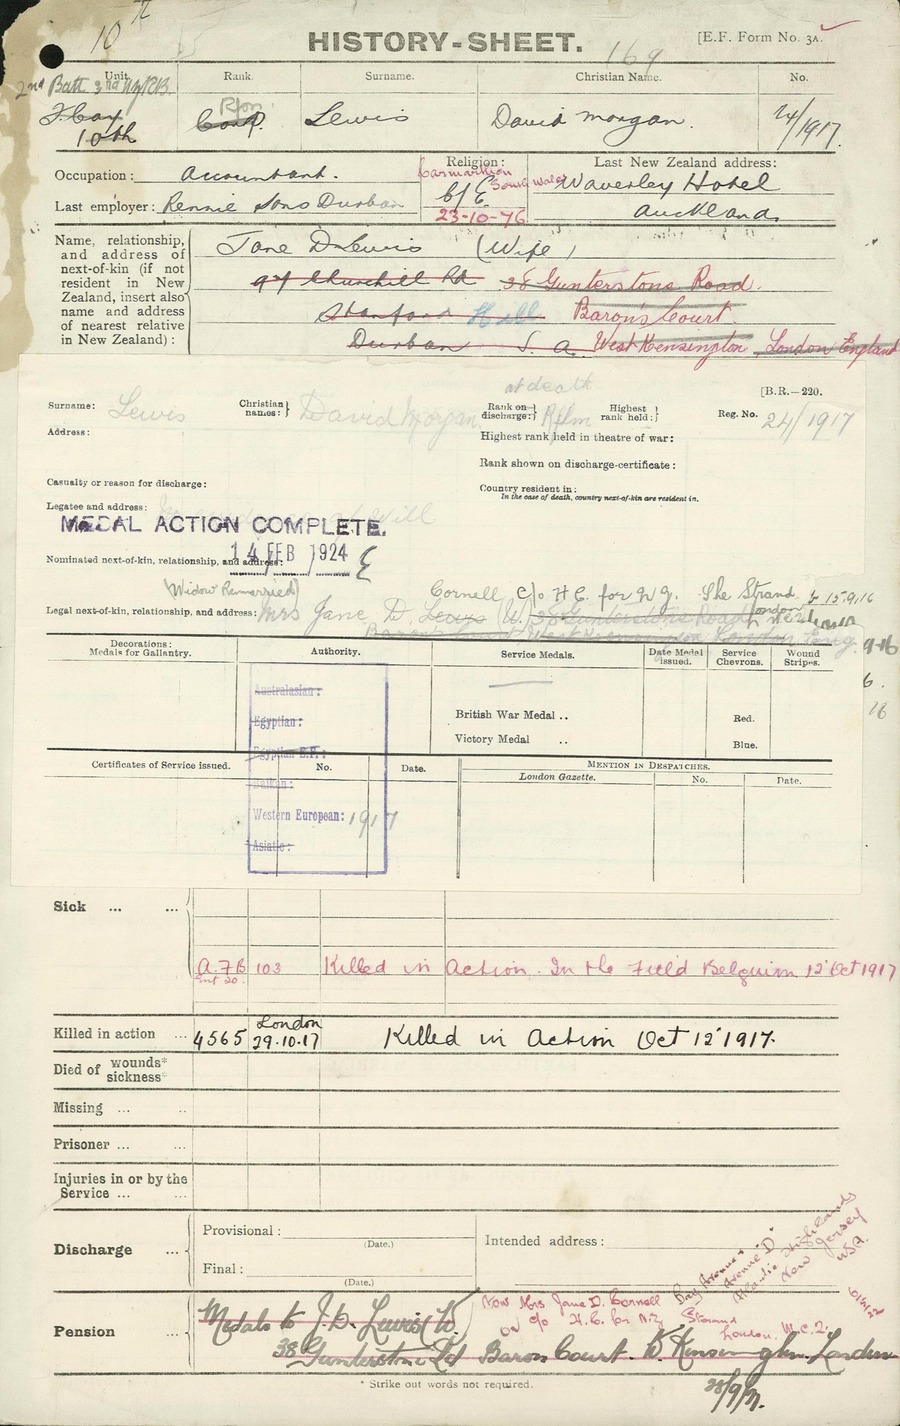 10th
HISTORY-SHEET.
169
[E.F. Form No. 3A.
Unit. Rank. Surname. Christian Name. No.
2nd Batt 3rd NZRB.
Rfm
F. Coy Corp. Lewis David Morgan. 24/1917.
10th
Occupation: Accountant.
Last employer: Rennie Sons Durban
Religion:
C/E
23-10-76
South Wales
Last New Zealand address:
Waverley Hotel
Auckland
Name, relationship, and address of next-of-kin (if not resident in New Zealand, insert also name and address of nearest relative in New Zealand):
Jane D Lewis (Wife)
97 Churchill Rd 38 Gunterstone Road.
Stamford Hill Baron's Court
Durban S. A. West Kensington, London England
[B.R.—220.
at death
Surname: Lewis Christian names: David Morgan Rank on discharge: Rflm Highest rank held: Reg. No. 24/1917
Address: Highest rank held in theatre of war:
Rank shown on discharge-certificate:
Casualty or reason for discharge: Country resident in:
In the case of death, country next-of-kin are resident in.
Legatee and address: Will
MEDAL ACTION COMPLETE.
14 FEB 1924
Nominated next-of-kin, relationship, and address:
(Widow Remarried) Cornell c/o H C. for N Z. The Strand 15-9-16
London
Legal next-of-kin, relationship, and address: Mrs Jane D. Lewis (W.) 38 Gunterstone Road
Baron's Court West Kensington London Eng. 9-16
Decorations: Medals for Gallantry. Authority. Service Medals. Date Medal issued. Service Chevrons. Wound Stripes.
Australasian:
Egyptian:
Egyptian E.F.:
Balkan:
Western European: 1917
Asiatic:
British War Medal .. Red.
Victory Medal .. Blue.
Certificates of Service issued. No. Date. Mention in Despatches.
London Gazette. No. Date.
Sick ... ...
A.7B 103 Killed in Action. In the Field Belguim 12 Oct 1917
Killed in action ... 4565 London 29.10.17 Killed in Action Oct 12 1917.
Died of wounds* sickness*
Missing ... ..
Prisoner ... ...
Injuries in or by the Service ... ...
Discharge ... Provisional: (Date.) Intended address:
Final: (Date.)
Bay Avenue & Avenue "D" Atlantic Highlands New Jersey USA.
Pension ... Medals to J. D. Lewis (W.)
Now Mrs Jane D. Cornell
c/o H. C. for N.Z. Strand London. W.C.2.
38 Gunterstone Rd Barons Court. W. Kensington. London
* Strike out words not required.